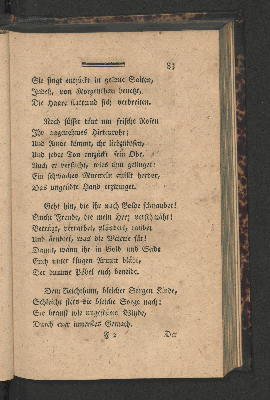 83
Sie singt entzückt in goldne Saiten,
Indeß, von Morgenthau benetzt,
Die Haare flatternd sich verbreiten.
Noch süsser tönt um frische Rosen
Ihr angenehmes Hirtenrohr;
Und Amor kömmt, ihr liebzukosen,
Und jeder Ton entzückt sein Ohr.
Auch er versucht, wies ihm gelinget:
Ein schwaches Murmeln quillt hervor,
Das ungeübte Hand erzwinget.
Geht hin, die ihr nach Golde schnaubet!
Sucht Freude, die mein Herz verschmäht!
Betrügt, verrathet, plündert, raubet
Und ärndtet, was die Witwe sät!
Damit, wann ihr in Gold und Seide
Euch unter klugen Armen bläht,
Der dumme Pöbel euch beneide.
Dem Reichthum, bleicher Sorgen Kinde,
Schleicht stets die bleiche Sorge nach:
Sie braust wie ungestüme Winde,
Durch euer innerstes Gemach.
F 2 Der